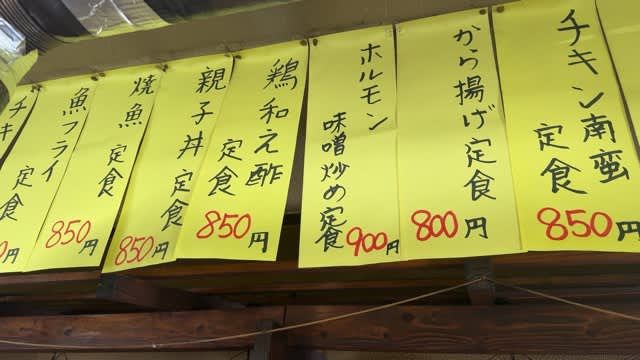 チキン南蛮
定食
850円
から揚げ定食
800円
ホルモン
味噌炒め定食
900円
鶏和え酢
定食
850円
親子丼定食
850円
焼魚定食
850円
魚フライ
定食
850円
チキ
定食
0円